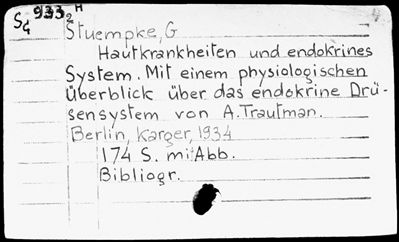 933₂ H
S₄
Stuempke, G
Hautkrankheiten und endokrines
System. Mit einem physiologischen
Überblick über das endokrine Drü-
sensystem von A. Trautman.
Berlin, Karger, 1934
174 S. mit Abb.
Bibliogr.